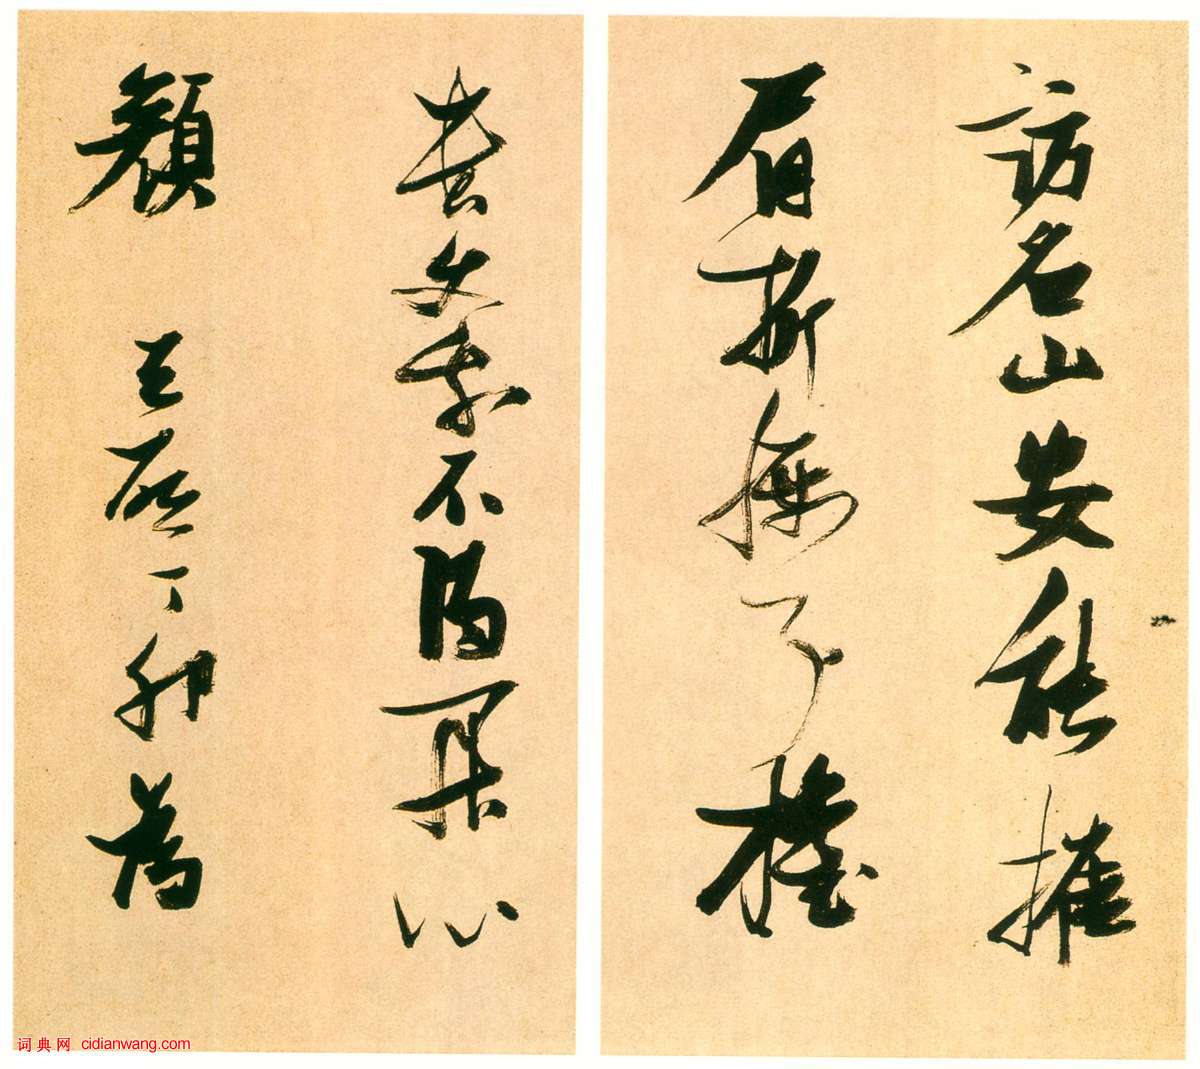 訪名山安能摧
眉折腰事權
貴使我不得開心
顏 天啟丁卯為
词典网 cidianwang.com